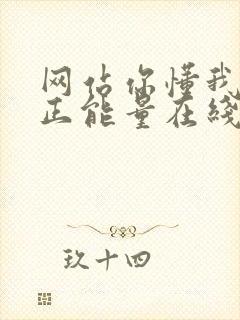 网站你懂我
正能量在线
玖十四